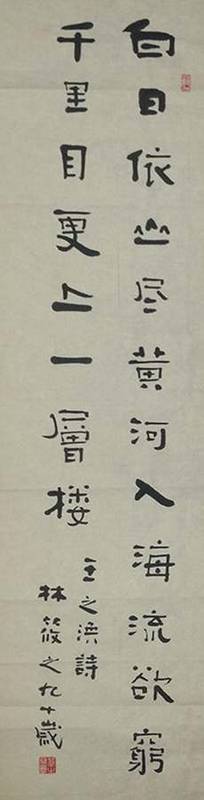 白日依山尽黄河入海流欲窮
千里目更上一層楼
王之涣詩
林筱之九十歲